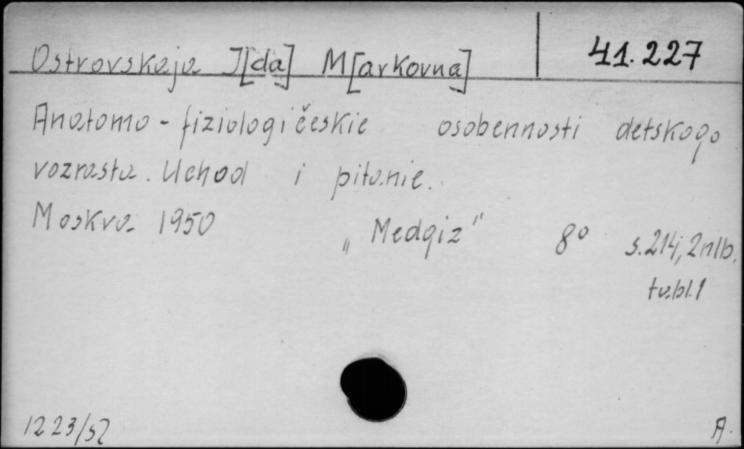 Ostrovskaja I[da] M[arkovna]
41.227
Anatomo-fiziologičeskie osobennosti detskogo
vozrasta. Uchod i pitanie.
Moskva 1950 „Medgiz" 8° s.214, 2nlb.
tabl.1
1223/52
A.